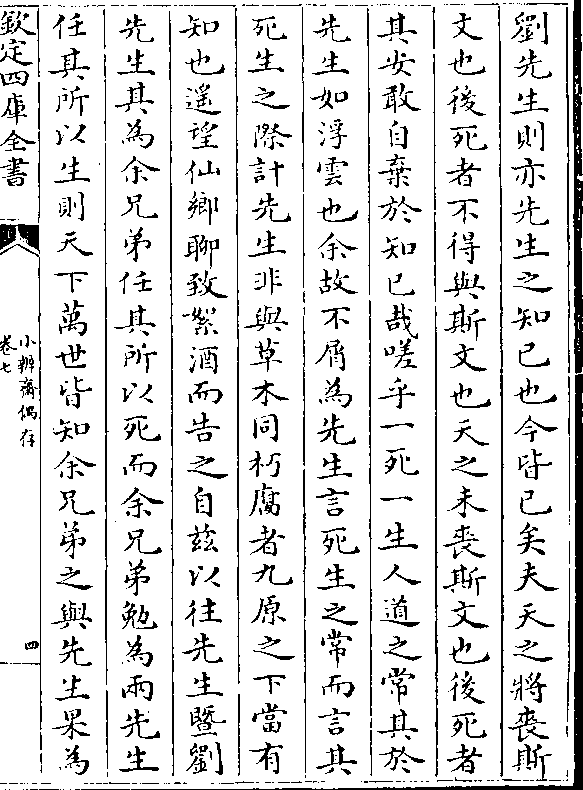 劉先生則亦先生之知已也今皆已矣夫天之將喪斯
文也後死者不得與斯文也天之未喪斯文也後死者
其安敢自棄於知已哉嗟乎一死一生人道之常其於
先生如浮雲也余故不屑為先生言死生之常而言其
死生之際計先生非與草木同朽腐者九原之下當有
知也遥望仙鄉聊致絮酒而告之自兹以往先生暨劉
先生其為余兄弟任其所以死而余兄弟勉為兩先生
任其所以生則天下萬世皆知余兄弟之與先生果為
欽定四庫全書
小辨齋偶存
卷七
四